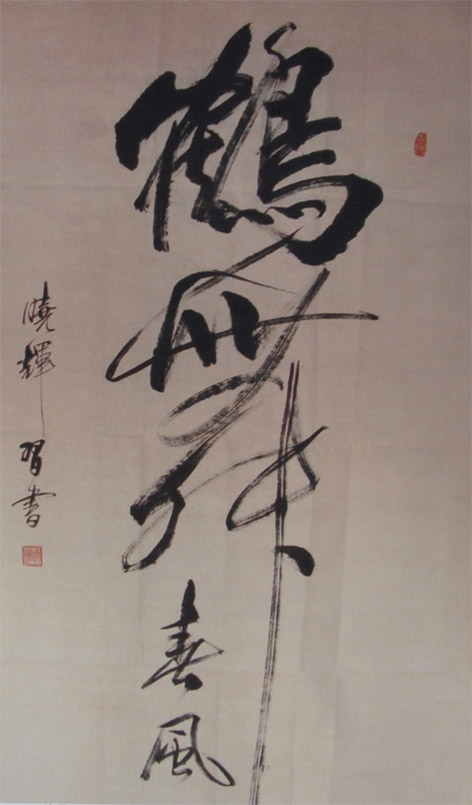 鶴舞春風
曉輝習書